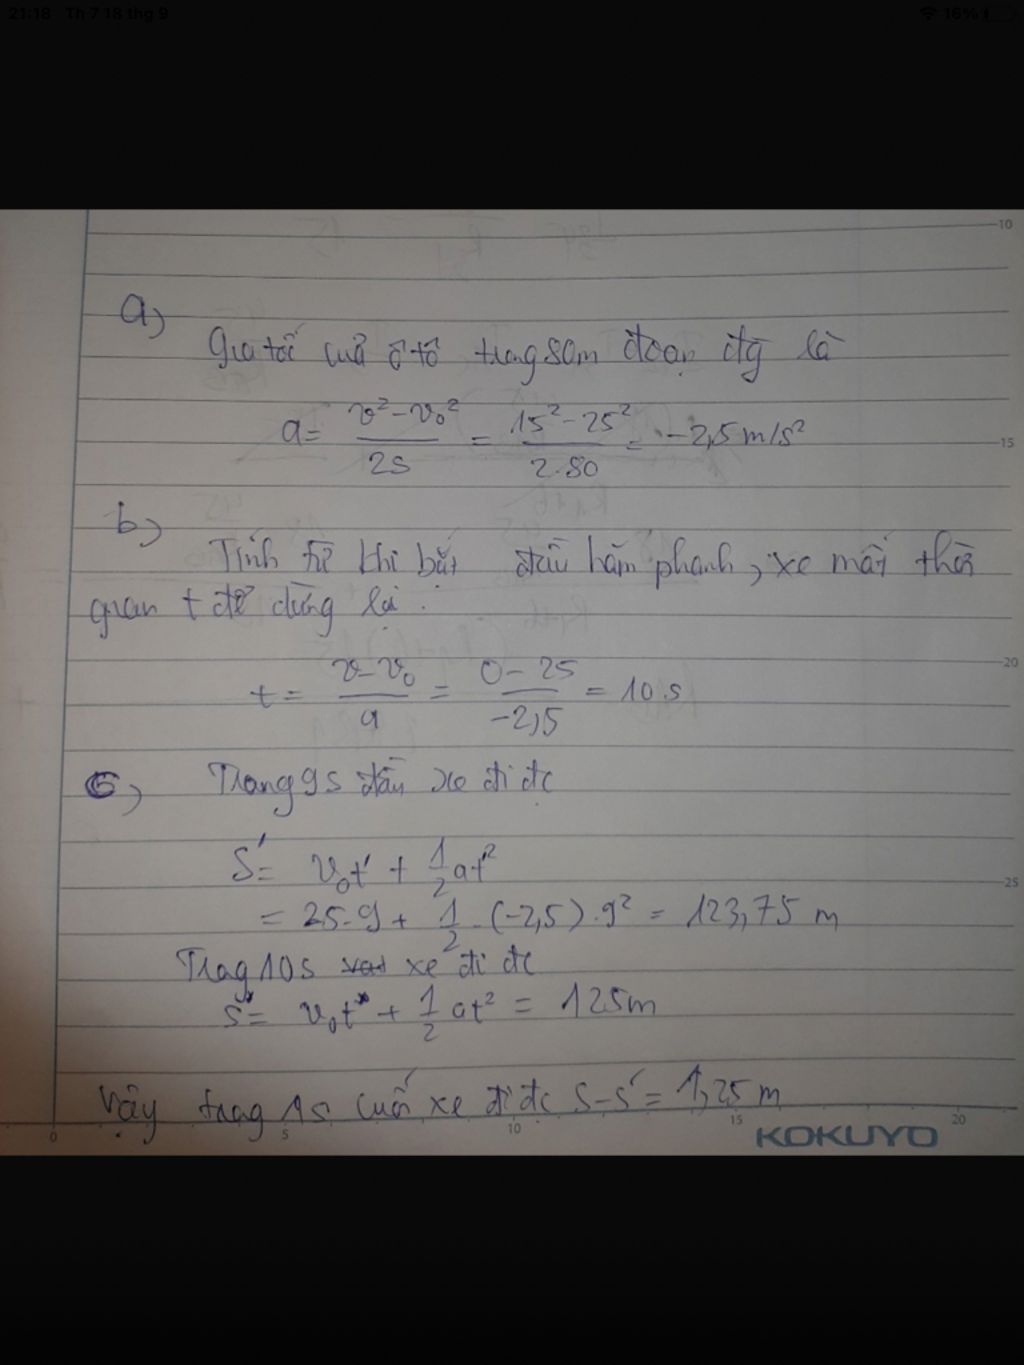 21:18 Th 7 18 thg 9 16%
10
a)
Gia tốc của ô tô trong 80m đoạn đg là
a = v² - v₀² / 2s = 15² - 25² / 2.80 = -2,5 m/s²
15
b)
Tính từ khi bắt đầu hãm phanh, xe mất thời
gian t để dừng lại :
t = v - v₀ / a = 0 - 25 / -2,5 = 10 s
20
c) Trong 9s đầu xe đi đc
S' = v₀t' + 1/2 at'²
25
= 25.9 + 1/2 . (-2,5) . 9² = 123,75 m
Trog 10s xe đi đc
S = v₀t + 1/2 at² = 125m
Vậy trog 1s cuối xe đi đc S-S' = 1,25 m
0 5 10 15 20
KOKUYO